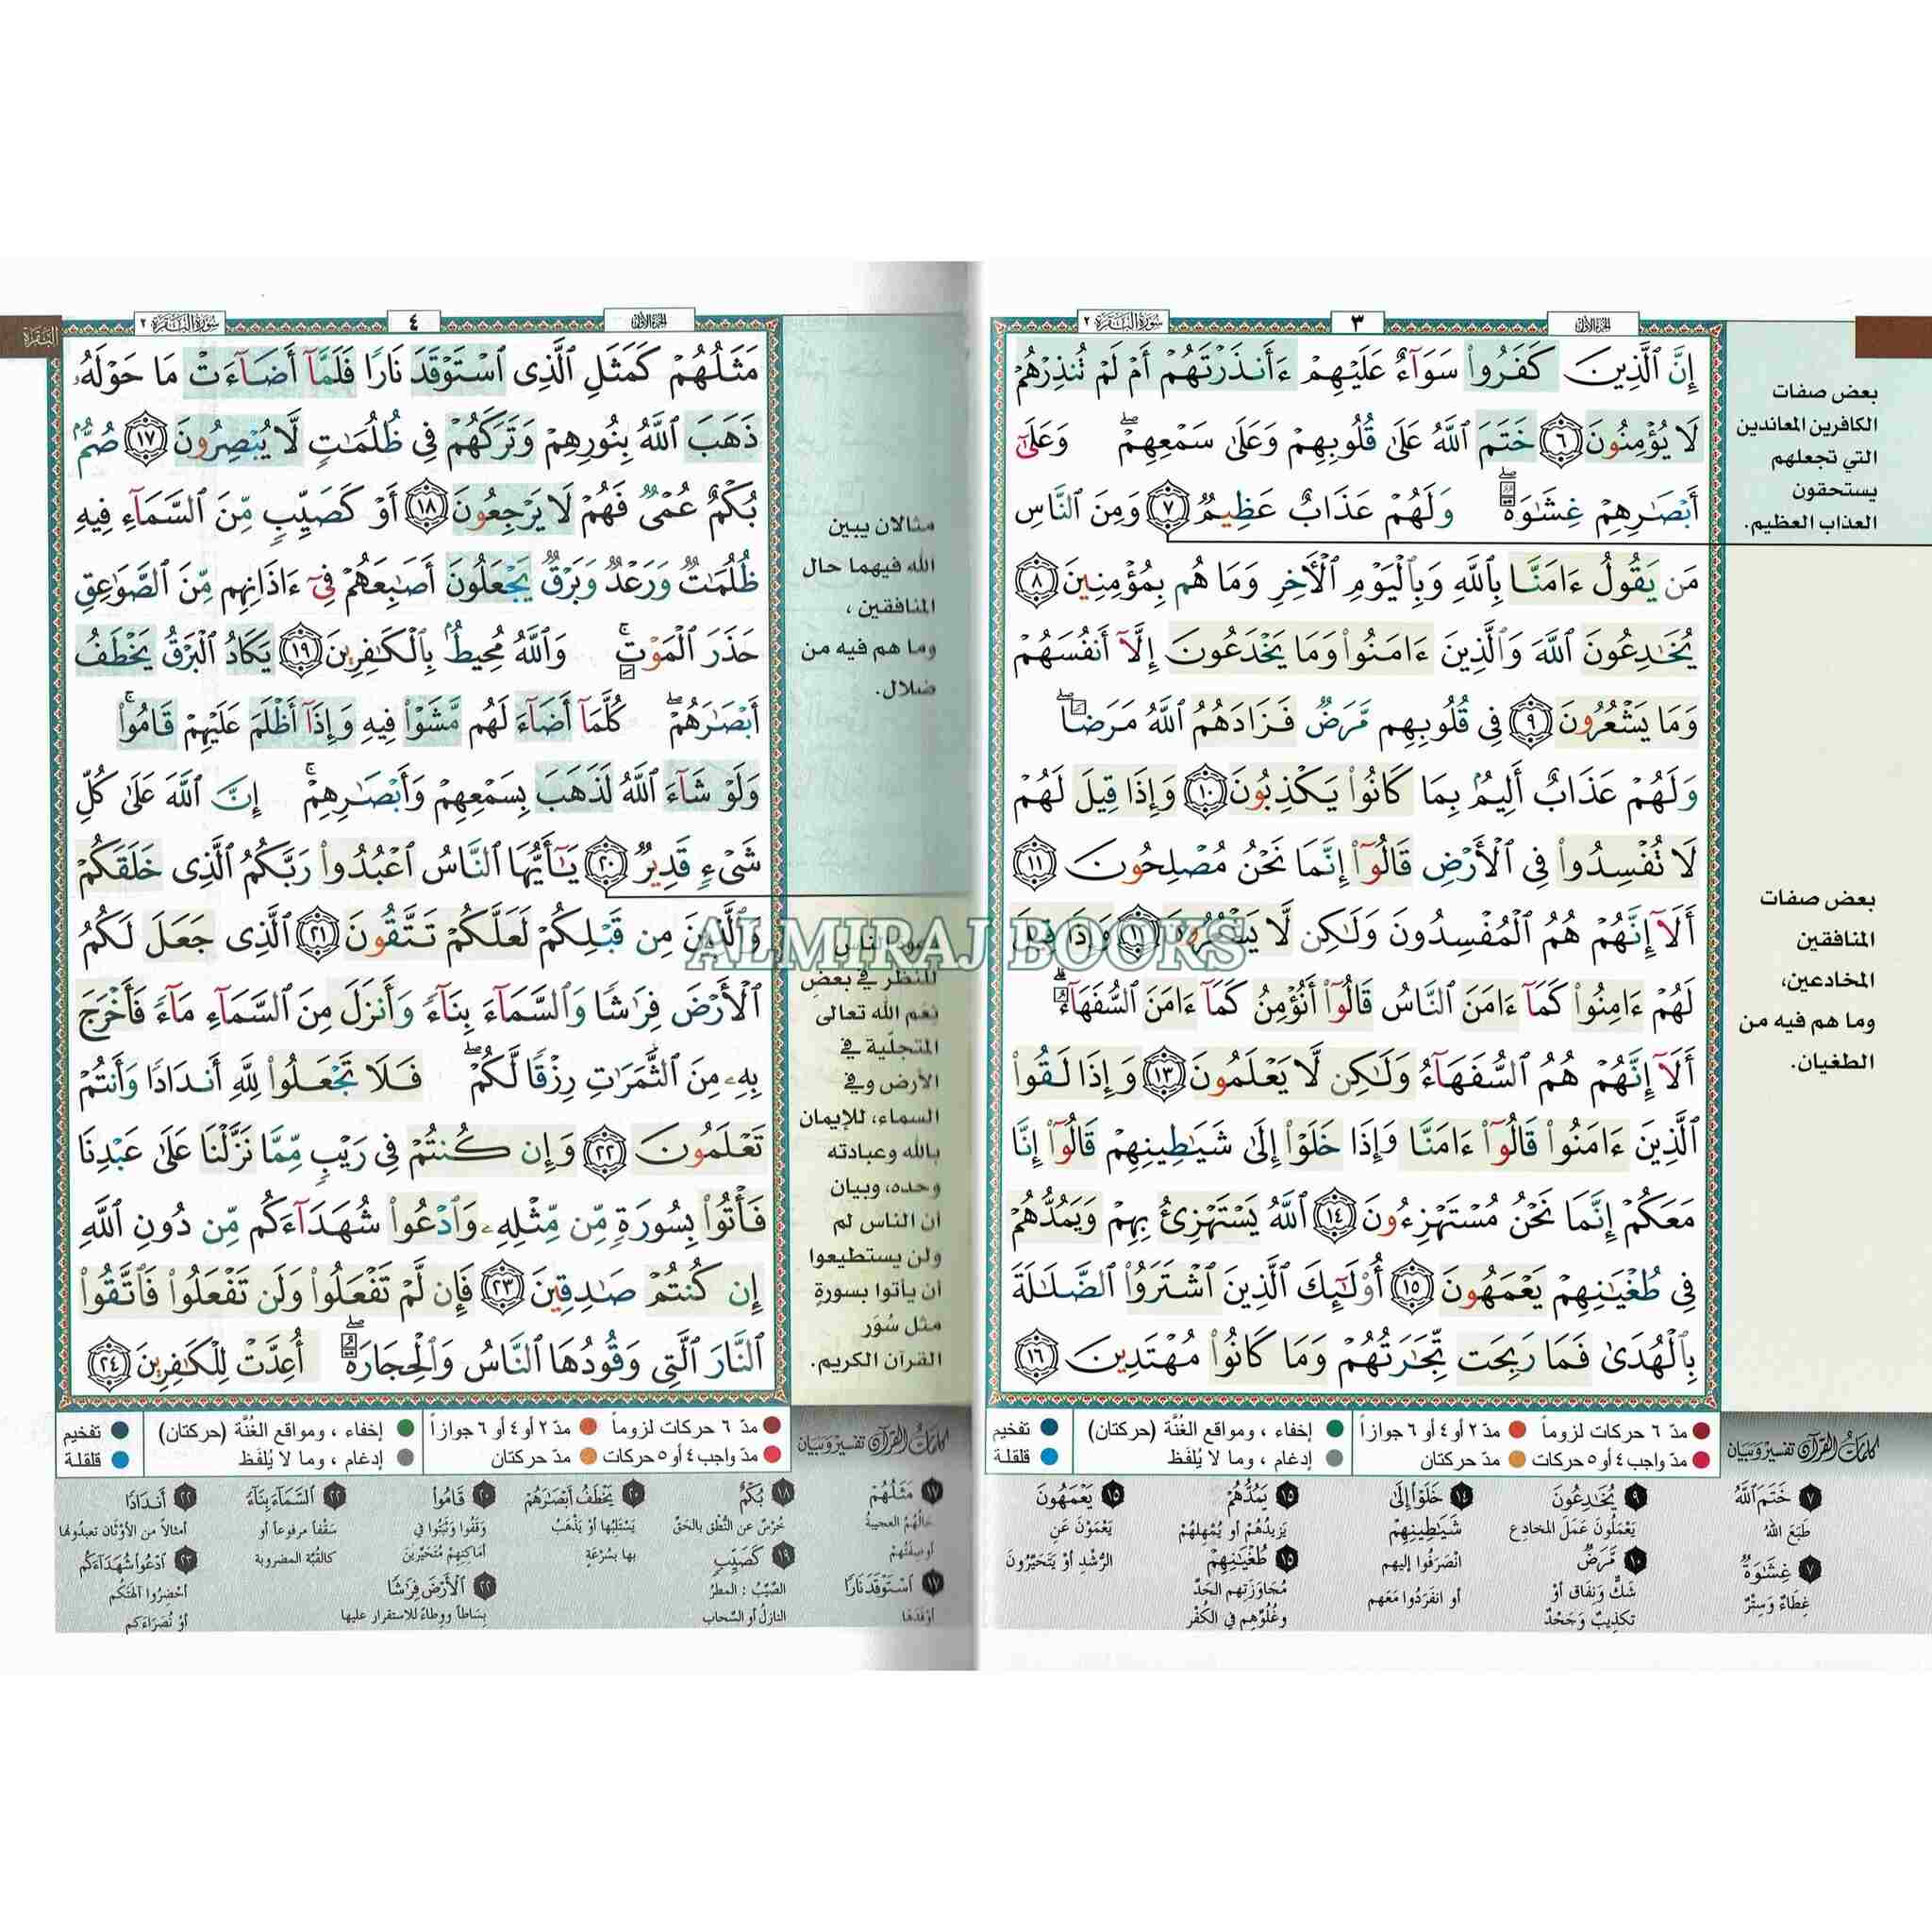 الجزء الأول
٣
سورة البقرة ٢
إِنَّ ٱلَّذِينَ كَفَرُوا۟ سَوَآءٌ عَلَيْهِمْ ءَأَنذَرْتَهُمْ أَمْ لَمْ تُنذِرْهُمْ
لَا يُؤْمِنُونَ ٦ خَتَمَ ٱللَّهُ عَلَىٰ قُلُوبِهِمْ وَعَلَىٰ سَمْعِهِمْ ۖ وَعَلَىٰٓ
أَبْصَـٰرِهِمْ غِشَـٰوَةٌ ۖ وَلَهُمْ عَذَابٌ عَظِيمٌ ٧ وَمِنَ ٱلنَّاسِ
مَن يَقُولُ ءَامَنَّا بِٱللَّهِ وَبِٱلْيَوْمِ ٱلْـَٔاخِرِ وَمَا هُم بِمُؤْمِنِينَ ٨
يُخَـٰدِعُونَ ٱللَّهَ وَٱلَّذِينَ ءَامَنُوا۟ وَمَا يَخْدَعُونَ إِلَّآ أَنفُسَهُمْ
وَمَا يَشْعُرُونَ ٩ فِى قُلُوبِهِم مَّرَضٌ فَزَادَهُمُ ٱللَّهُ مَرَضًا ۖ
وَلَهُمْ عَذَابٌ أَلِيمٌۢ بِمَا كَانُوا۟ يَكْذِبُونَ ١٠ وَإِذَا قِيلَ لَهُمْ
لَا تُفْسِدُوا۟ فِى ٱلْأَرْضِ قَالُوٓا۟ إِنَّمَا نَحْنُ مُصْلِحُونَ ١١
أَلَآ إِنَّهُمْ هُمُ ٱلْمُفْسِدُونَ وَلَـٰكِن لَّا يَشْعُرُونَ ١٢ وَإِذَا قِيلَ
لَهُمْ ءَامِنُوا۟ كَمَآ ءَامَنَ ٱلنَّاسُ قَالُوٓا۟ أَنُؤْمِنُ كَمَآ ءَامَنَ ٱلسُّفَهَآءُ ۗ
أَلَآ إِنَّهُمْ هُمُ ٱلسُّفَهَآءُ وَلَـٰكِن لَّا يَعْلَمُونَ ١٣ وَإِذَا لَقُوا۟
ٱلَّذِينَ ءَامَنُوا۟ قَالُوٓا۟ ءَامَنَّا وَإِذَا خَلَوْا۟ إِلَىٰ شَيَـٰطِينِهِمْ قَالُوٓا۟ إِنَّا
مَعَكُمْ إِنَّمَا نَحْنُ مُسْتَهْزِءُونَ ١٤ ٱللَّهُ يَسْتَهْزِئُ بِهِمْ وَيَمُدُّهُمْ
فِى طُغْيَـٰنِهِمْ يَعْمَهُونَ ١٥ أُو۟لَـٰٓئِكَ ٱلَّذِينَ ٱشْتَرَوُا۟ ٱلضَّلَـٰلَةَ
بِٱلْهُدَىٰ فَمَا رَبِحَت تِّجَـٰرَتُهُمْ وَمَا كَانُوا۟ مُهْتَدِينَ ١٦
بعض صفات
الكافرين المعاندين
التي تجعلهم
يستحقون
العذاب العظيم.
بعض صفات
المنافقين
المخادعين،
وما هم فيه من
الطغيان.
مدّ ٦ حركات لزوماً مدّ ٢ أو ٤ أو ٦ جوازاً إخفاء ، ومواقع الغُنَّة (حركتان) تفخيم
مدّ واجب ٤ أو ٥ حركات مدّ حركتان إدغام ، وما لا يُلفَظ قلقلة
كلمات القرآن تفسير وبيان
٧ خَتَمَ ٱللَّهُ
طَبَعَ اللهُ
٧ غِشَـٰوَةٌ
غِطَاءٌ وَسِتْرٌ
٩ يُخَـٰدِعُونَ
يَعْمَلُونَ عَمَلَ المخادِعِ
١٠ مَّرَضٌ
شَكٌّ وَنِفَاق أوْ
تكذِيبٌ وَجَحْدٌ
١٤ خَلَوْا۟ إِلَىٰ
شَيَـٰطِينِهِمْ
انْصَرَفُوا إليهم
أو انفَرَدُوا مَعَهم
١٥ يَمُدُّهُمْ
يَزِيدُهُمْ أو يُمْهِلُهُمْ
١٥ طُغْيَـٰنِهِمْ
مُجَاوَزَتِهم الحَدَّ
وغُلُوِّهِم في الكُفْر
١٥ يَعْمَهُونَ
يَعْمَوْنَ عَنِ
الرُّشْدِ أوْ يَتَحَيَّرُونَ
الجزء الأول
٤
سورة البقرة ٢
البقرة
مَثَلُهُمْ كَمَثَلِ ٱلَّذِى ٱسْتَوْقَدَ نَارًا فَلَمَّآ أَضَآءَتْ مَا حَوْلَهُۥ
ذَهَبَ ٱللَّهُ بِنُورِهِمْ وَتَرَكَهُمْ فِى ظُلُمَـٰتٍ لَّا يُبْصِرُونَ ١٧ صُمٌّۢ
بُكْمٌ عُمْىٌ فَهُمْ لَا يَرْجِعُونَ ١٨ أَوْ كَصَيِّبٍ مِّنَ ٱلسَّمَآءِ فِيهِ
ظُلُمَـٰتٌ وَرَعْدٌ وَبَرْقٌ يَجْعَلُونَ أَصَـٰبِعَهُمْ فِىٓ ءَاذَانِهِم مِّنَ ٱلصَّوَٰعِقِ
حَذَرَ ٱلْمَوْتِ ۚ وَٱللَّهُ مُحِيطٌۢ بِٱلْكَـٰفِرِينَ ١٩ يَكَادُ ٱلْبَرْقُ يَخْطَفُ
أَبْصَـٰرَهُمْ ۖ كُلَّمَآ أَضَآءَ لَهُم مَّشَوْا۟ فِيهِ وَإِذَآ أَظْلَمَ عَلَيْهِمْ قَامُوا۟ ۚ
وَلَوْ شَآءَ ٱللَّهُ لَذَهَبَ بِسَمْعِهِمْ وَأَبْصَـٰرِهِمْ ۚ إِنَّ ٱللَّهَ عَلَىٰ كُلِّ
شَىْءٍ قَدِيرٌ ٢٠ يَـٰٓأَيُّهَا ٱلنَّاسُ ٱعْبُدُوا۟ رَبَّكُمُ ٱلَّذِى خَلَقَكُمْ
وَٱلَّذِينَ مِن قَبْلِكُمْ لَعَلَّكُمْ تَتَّقُونَ ٢١ ٱلَّذِى جَعَلَ لَكُمُ
ٱلْأَرْضَ فِرَٰشًا وَٱلسَّمَآءَ بِنَآءً وَأَنزَلَ مِنَ ٱلسَّمَآءِ مَآءً فَأَخْرَجَ
بِهِۦ مِنَ ٱلثَّمَرَٰتِ رِزْقًا لَّكُمْ ۖ فَلَا تَجْعَلُوا۟ لِلَّهِ أَندَادًا وَأَنتُمْ
تَعْلَمُونَ ٢٢ وَإِن كُنتُمْ فِى رَيْبٍ مِّمَّا نَزَّلْنَا عَلَىٰ عَبْدِنَا
فَأْتُوا۟ بِسُورَةٍ مِّن مِّثْلِهِۦ وَٱدْعُوا۟ شُهَدَآءَكُم مِّن دُونِ ٱللَّهِ
إِن كُنتُمْ صَـٰدِقِينَ ٢٣ فَإِن لَّمْ تَفْعَلُوا۟ وَلَن تَفْعَلُوا۟ فَٱتَّقُوا۟
ٱلنَّارَ ٱلَّتِى وَقُودُهَا ٱلنَّاسُ وَٱلْحِجَارَةُ ۖ أُعِدَّتْ لِلْكَـٰفِرِينَ ٢٤
مثالان يبين
الله فيهما حال
المنافقين ،
وما هم فيه من
ضلال.
الناس
للنظر في بعض
نعم الله تعالى
المتجلّية في
الأرض وفي
السماء، للإيمان
بالله وعبادته
وحده، وبيان
أن الناس لم
ولن يستطيعوا
أن يأتوا بسورةٍ
مثل سُوَر
القرآن الكريم.
مدّ ٦ حركات لزوماً مدّ ٢ أو ٤ أو ٦ جوازاً إخفاء ، ومواقع الغُنَّة (حركتان) تفخيم
مدّ واجب ٤ أو ٥ حركات مدّ حركتان إدغام ، وما لا يُلفَظ قلقلة
كلمات القرآن تفسير وبيان
١٧ مَثَلُهُمْ
حَالُهُمُ العجيبةُ
أو صِفَتُهُمْ
١٧ ٱسْتَوْقَدَ نَارًا
أوْقَدَهَا
١٨ بُكْمٌ
خُرْسٌ عن النُّطْقِ بالحَقِّ
١٩ كَصَيِّبٍ
الصَّيِّبُ : المطرُ
النازلُ أو السَّحاب
٢٠ يَخْطَفُ أَبْصَـٰرَهُمْ
يَسْتَلِبُها أوْ يَذْهَبُ
بها بسُرْعَةٍ
٢٠ قَامُوا۟
وَقَفُوا وَثَبَتُوا في
أمَاكِنِهِمْ مُتَحَيِّرينَ
٢٢ ٱلْأَرْضَ فِرَٰشًا
بِسَاطاً وَوِطَاءً للاستقرار عليها
٢٢ ٱلسَّمَآءَ بِنَآءً
سَقْفاً مرفوعاً أو
كالقُبَّة المضروبة
٢٢ أَندَادًا
أمثالاً من الأوْثَان تعبدُونَها
٢٣ ٱدْعُوا۟ شُهَدَآءَكُم
أحْضِرُوا آلهَتَكُم
أوْ نُصَرَاءَكم
ALMIRAJ BOOKS